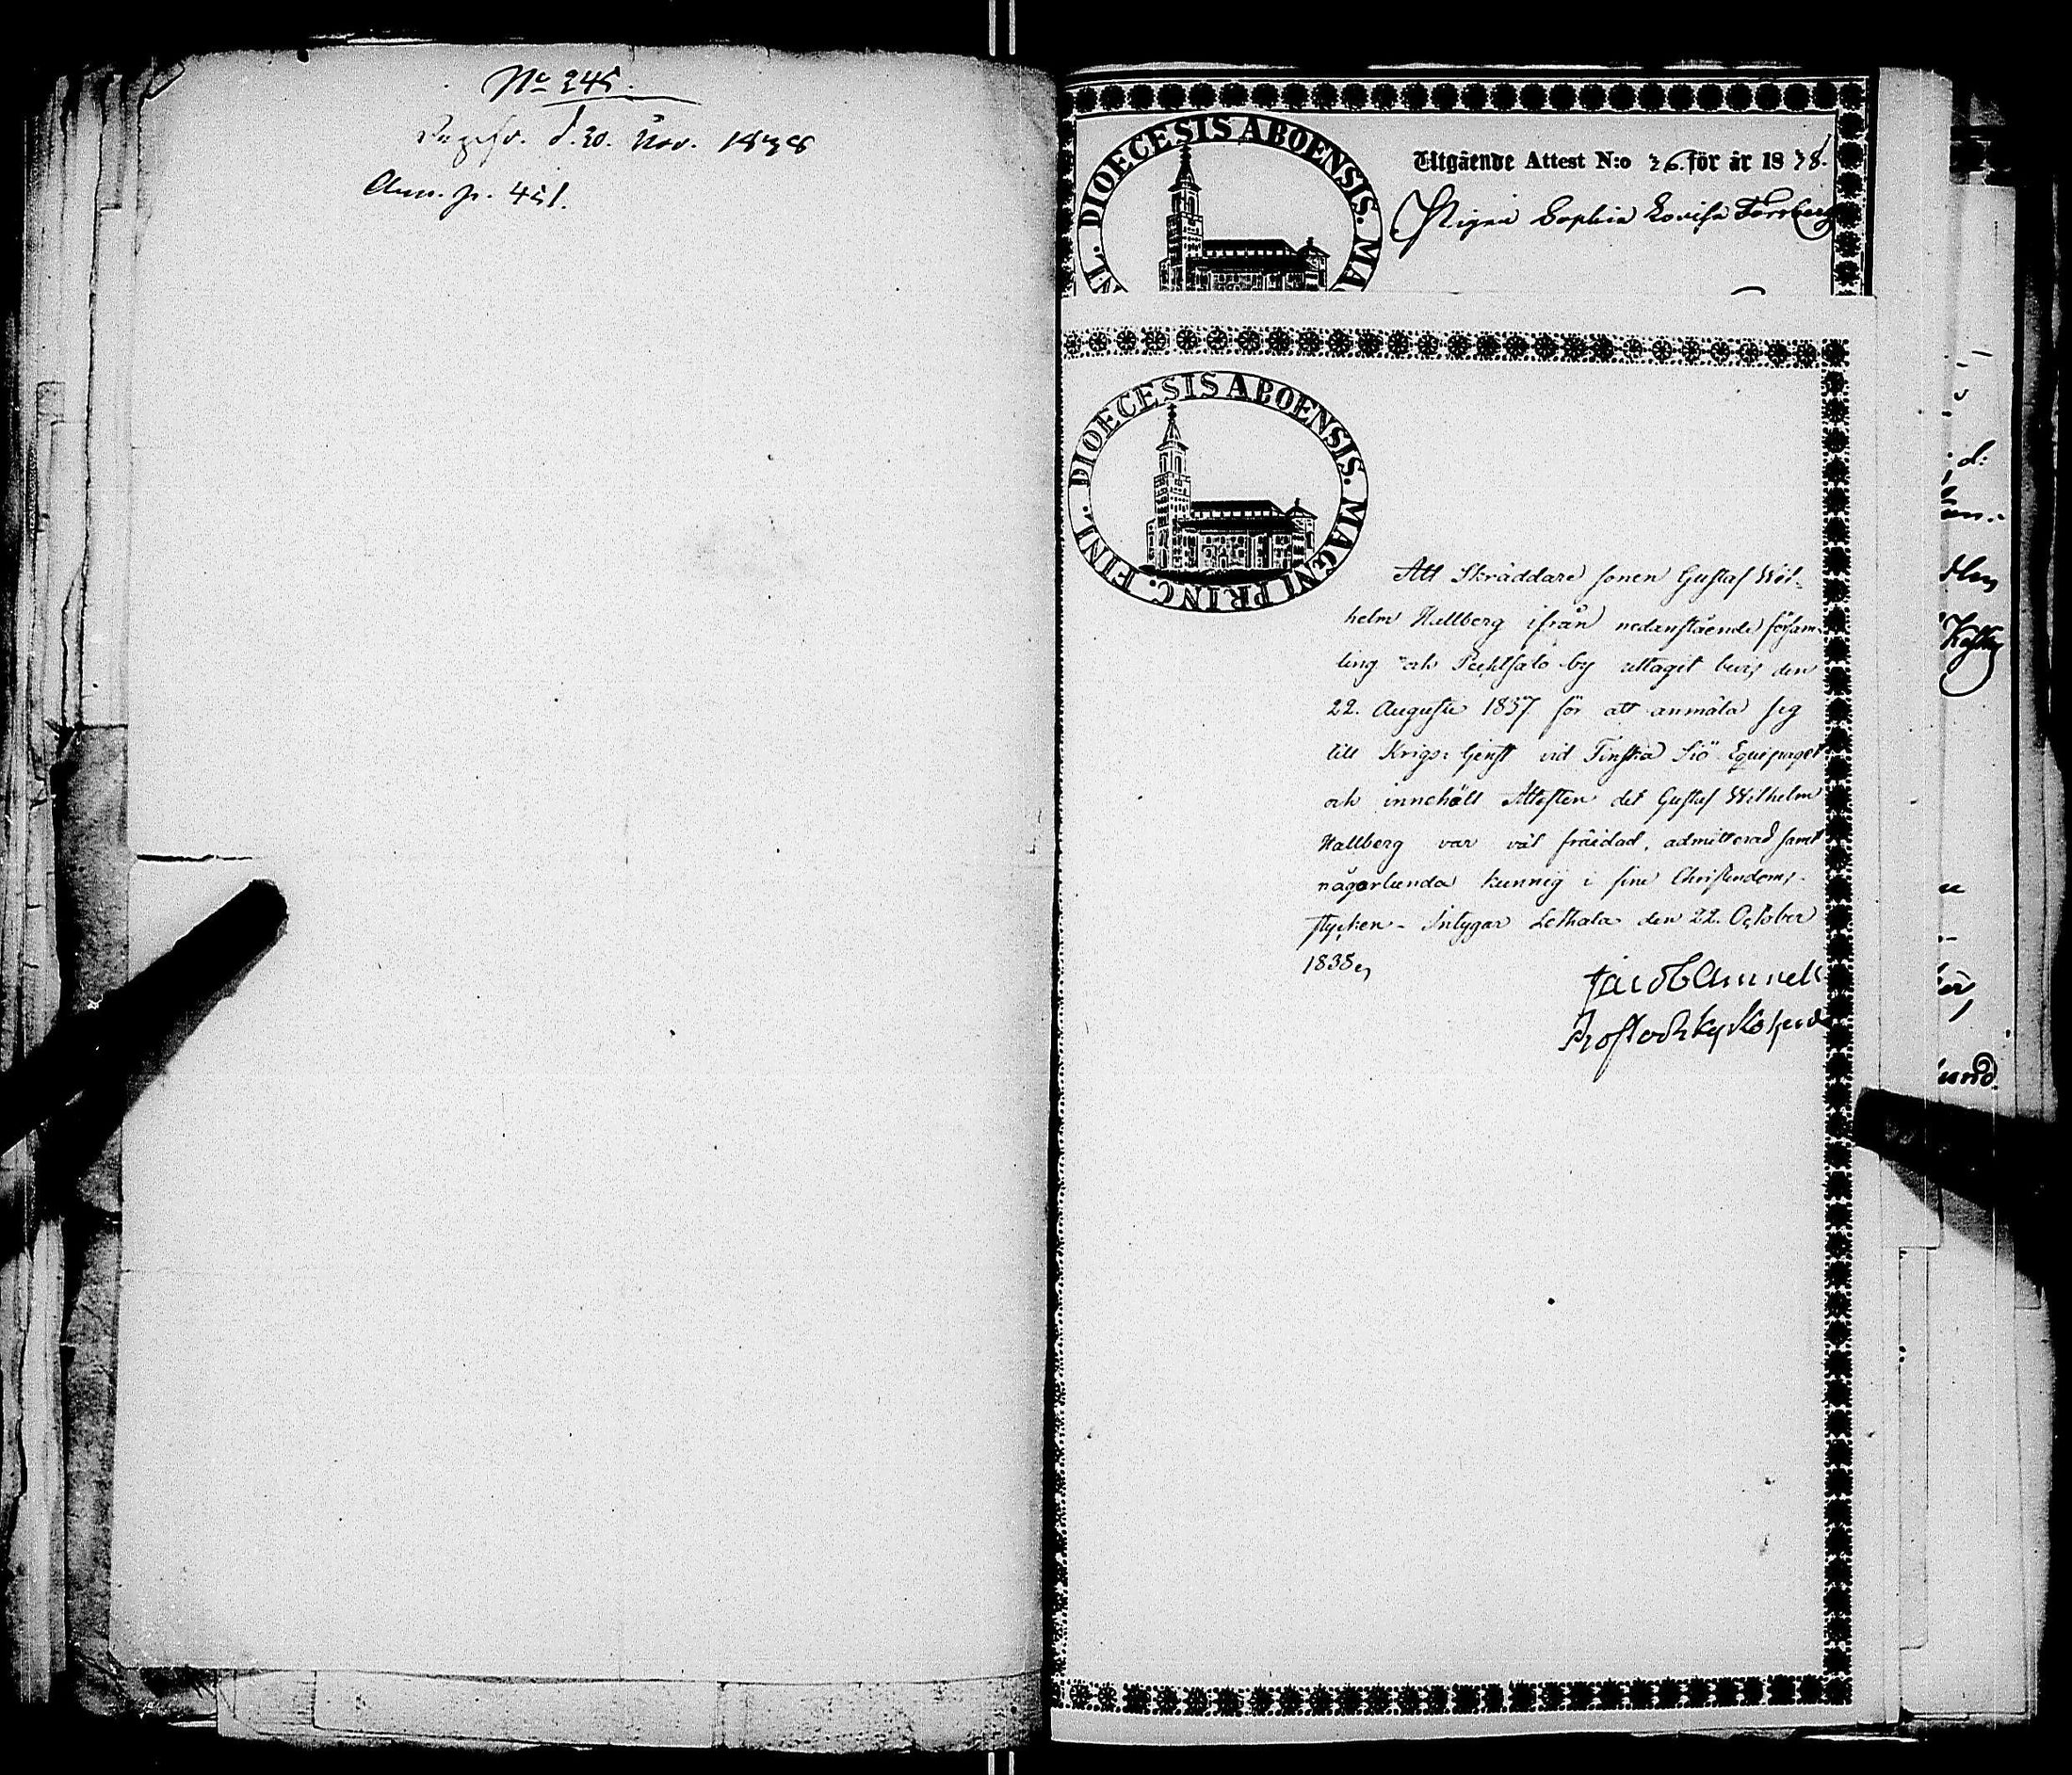 No 245.
d. 30. Nov. 1838
Ann. p. 451.
DIOECESIS ABOENSIS. MA
Utgående Attest N:o 26. för år 1838.
Pigan Sophia Lovisa Forsberg
DIOECESIS ABOENSIS. MAGNI PRINC. FINL.
Att Skräddare sonen Gustaf Wil-
helm Hallberg ifrån nedanstående försam-
ling och by uttagit bevis den
22. Augusti 1837. för att anmäla sig
till Krigs-tjenst vid Finska Siö Equipaget
och innehölt Attesten det Gustaf Wilhelm
Hallberg var väl fräjdad, admitterad samt
någorlunda kunnig i sine Christendoms-
stycken - Intygar Lethala den 22. October
1838
Jacob Amnell
Prost och Kyrkoherde
d: